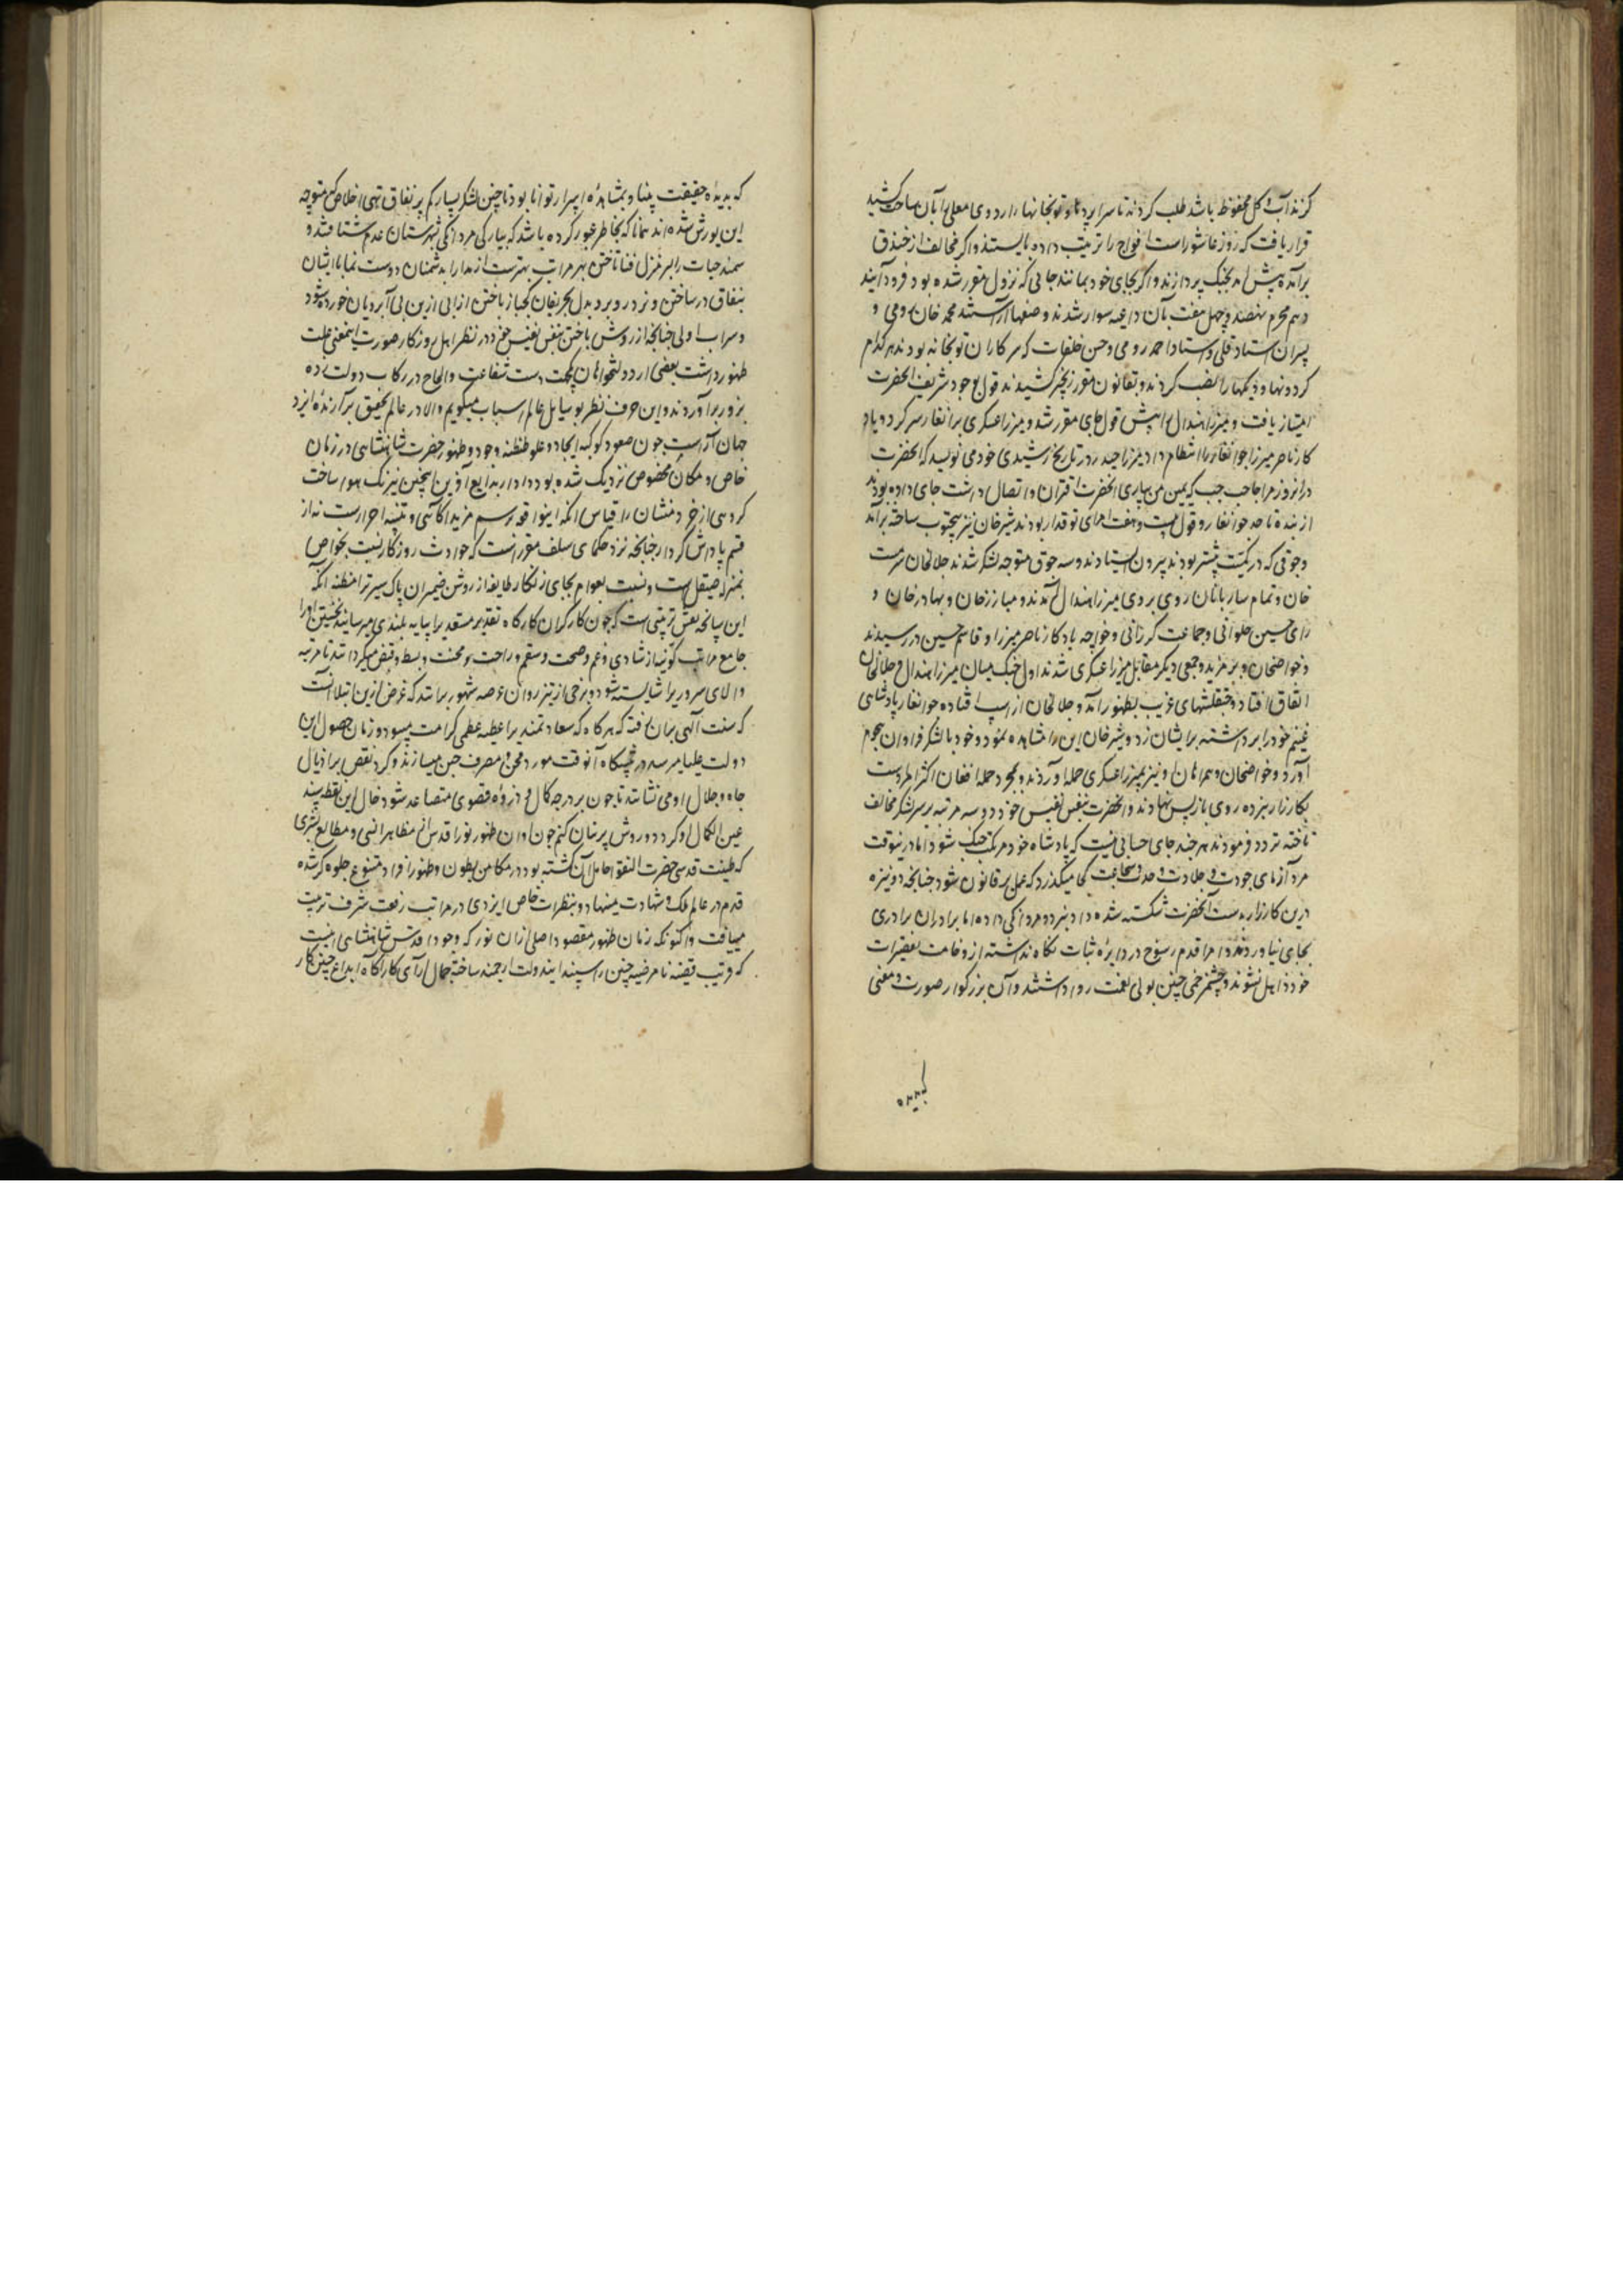 کزند آب و کل محفوظ باشد طلب کردند تا سراپردها و توپخانها را اردوی معلی را بآن ساحت کشید
قرار یافت که روز عاشوراست افواج را ترتیب داده بایستند و اکر مخالف از خندق
برآمده پیش آمد بجنک پردازند و اکر بجای خود بمانند جایی که نزول مقرر شده بود فرود آیند
دهم محرم نهصد و چهل هفت بآن داعیه سوار شدند و صفها آراستند محمد خان رومی و
پسران استاد قلی و استاد احمد رومی و حسن خلفات که سرکاران توپخانه بودند هر کدام
کردونها و دیکها را نصب کردند و بقانون مقرر زنجیر کشیدند قول بوجود شریف آنحضرت
امتیاز یافت و میرزا هندال را پیش قول جای مقرر شد و میرزا عسکری برانغار سر کرد و یاد
کار ناصر میرزا جوانغار را انتظام داد میرزا حیدر در تاریخ رشیدی خود می نویسد که آنحضرت
در آنروز مرا جانب چپ که یمین من بیساری آنحضرت اقتران و اتصال داشت جای داده بودند
از بنده تا حد جوانغار و قول بیست و هفت امرای توقدار بودند شیرخان نیز پنج توب ساخته برآمد
و جوقی که در کمیت بیشتر بودند بیرون ایستادند و سه جوق متوجه لشکر شدند جلالخان سرمست
خان و تمام ساربانان روی بروی میرزا هندال آمدند و مبارزخان و بهادرخان و
رای حسین جلوانی و جماعت کررانی و خواجه یادکار ناصر میرزا و قاسم حسین در رسیدند
و خواصخان و برمزید و جمعی دیکر مقابل میرزا عسکری شدند اول جنک میان میرزا هندال و جلالخان
اتفاق افتاد و چپقلشهای غریب بظهور آمد و جلالخان از اسپ افتاده جوانغار پادشاهی
غنیم خود را برداشته برایشان زد و شیرخان این را مشاهده نمود و خود با لشکر فراوان هجوم
آورد و خواصخان و همراهان او نیز بمیرزا عسکری حمله آوردند و بمجرد حمله افغان اکثر امرا دست
بکارزار نبرده روی باز پس نهادند و آنحضرت بنفس نفیس خود دو سه مرتبه بر سر لشکر مخالف
تاخته تردد فرمودند هر چند جای حسابی نیست که پادشاه خود مرتکب جنک شود اما درینوقت
مرد آزمای جودت و جلادت و حدت و شجاعت کی میکذارد که عمل بر قانون شود چنانچه دو نیزه
درین کارزار بدست آنحضرت شکسته شده داد نبرد و مردانکی داده اما برادران برادری
بجای نیاوردند و امرا قدم رسوخ در دایره ثبات نکاه نداشته از وخامت تقصیرات
خود ذاهل نشوند و چشم زخمی چنین بولی نعمت روا داشتند و آن بزرکوار صورت و معنی
که بدیده
که بدیده حقیقت بینا و بمشاهده اسرار توانا بود تا چنین لشکر بسیار کم پر نفاق تهی اخلاص که متوجه
این یورش شده اند همانا که بخاطر عبور کرده باشد که ببارکی مردانکی بشهرستان عدم شتافتند و
سمند حیات را بر منزل فنا تاختن بهر مراتب بهترست از مدارا بدشمنان دوست نما با ایشان
بنفاق در ساختن و نرد در و برد بدل بحریفان کجباز باختن از آبی ازین بی آبرویان خورده شود
و سراب اولی چنانچه از روش باختن بنفس نفیس خود در نظر اهل روزکار صورت اینمعنی علت
ظهور داشت بعضی از دولتخواهان بجهت دست شفاعت و الحاح در رکاب دولت زده
بزور برآوردند و این حرف نظر بوسایل عالم اسباب میکویم والا در عالم تحقیق برآرنده ایزد
جهان آراست چون صعود کوکبه ایجاد و علو طنطنه وجود و ظهور حضرت شاهنشاهی در زمان
خاص و مکان مخصوص نزدیک شده بود دادار بدایع آفرین اینچنین نیرنک هوا ساخت
کروهی از خردمنشان را قیاس آنکه اینواقعه رسم مزید آکاهی و تنبیه احرارست نه از
قسم پاداش کردار چنانچه نزد حکمای سلف مقررانست که حوادث روزکار نسبت بخواص
بمنزله صیقل است و نسبت بعوام بجای زنکار طایفه از روشن ضمیران پاک سیر ترا مظنه آنکه
این سانحه نقش تربیتی است که چون کارکران کارکاه تقدیر مستعدیرا بپایه بلندی میرسانند نخستین او را
جامع مراتب کونیه از شادی و غم و صحت و سقم و راحت و محنت و بسط و قبض میکردانند تا مرتبه
والای سروریرا شایسته شود و برخی از تیزروان عرصه شهود برانند که غرض ازین ابتلا آنست
که سنت آلهی بران رفته که هرکاه که سعادتمندیرا عطیه عظمی کرامت میشود و زمان حصول این
دولت علیا میرسد در پیشکاه آنوقت مورد محن و مصرف حزن میسازند و کرد نقص بر اذیال
جاه و جلال او می نشانند تا چون بر درجه کمال و ذروه قصوی متصاعد شود خال این نقطه سپند
عین الکمال او کردد و روش پریشان کنم چون اوان ظهور نور اقدس از مظاهر انسی و مطالع بشری
که طینت قدسی حضرت النقوا حامل آن کشته بود در مکامن بطون و ظهور افراد متنوع جلوه کر شده
قدم در عالم ملک و شهادت مینهاد و بنظرات خاص ایزدی در مراتب رفعت شرف تربیت
مییافت و اکنونکه زمان ظهور مقصود اصلی ازان نور که وجود اقدس شاهنشاهی است
که قریب قضیه نامرضیه چنین را سپند ایندولت ارجمند ساخته جمال آرای کارآکاه ابداع چنین کار